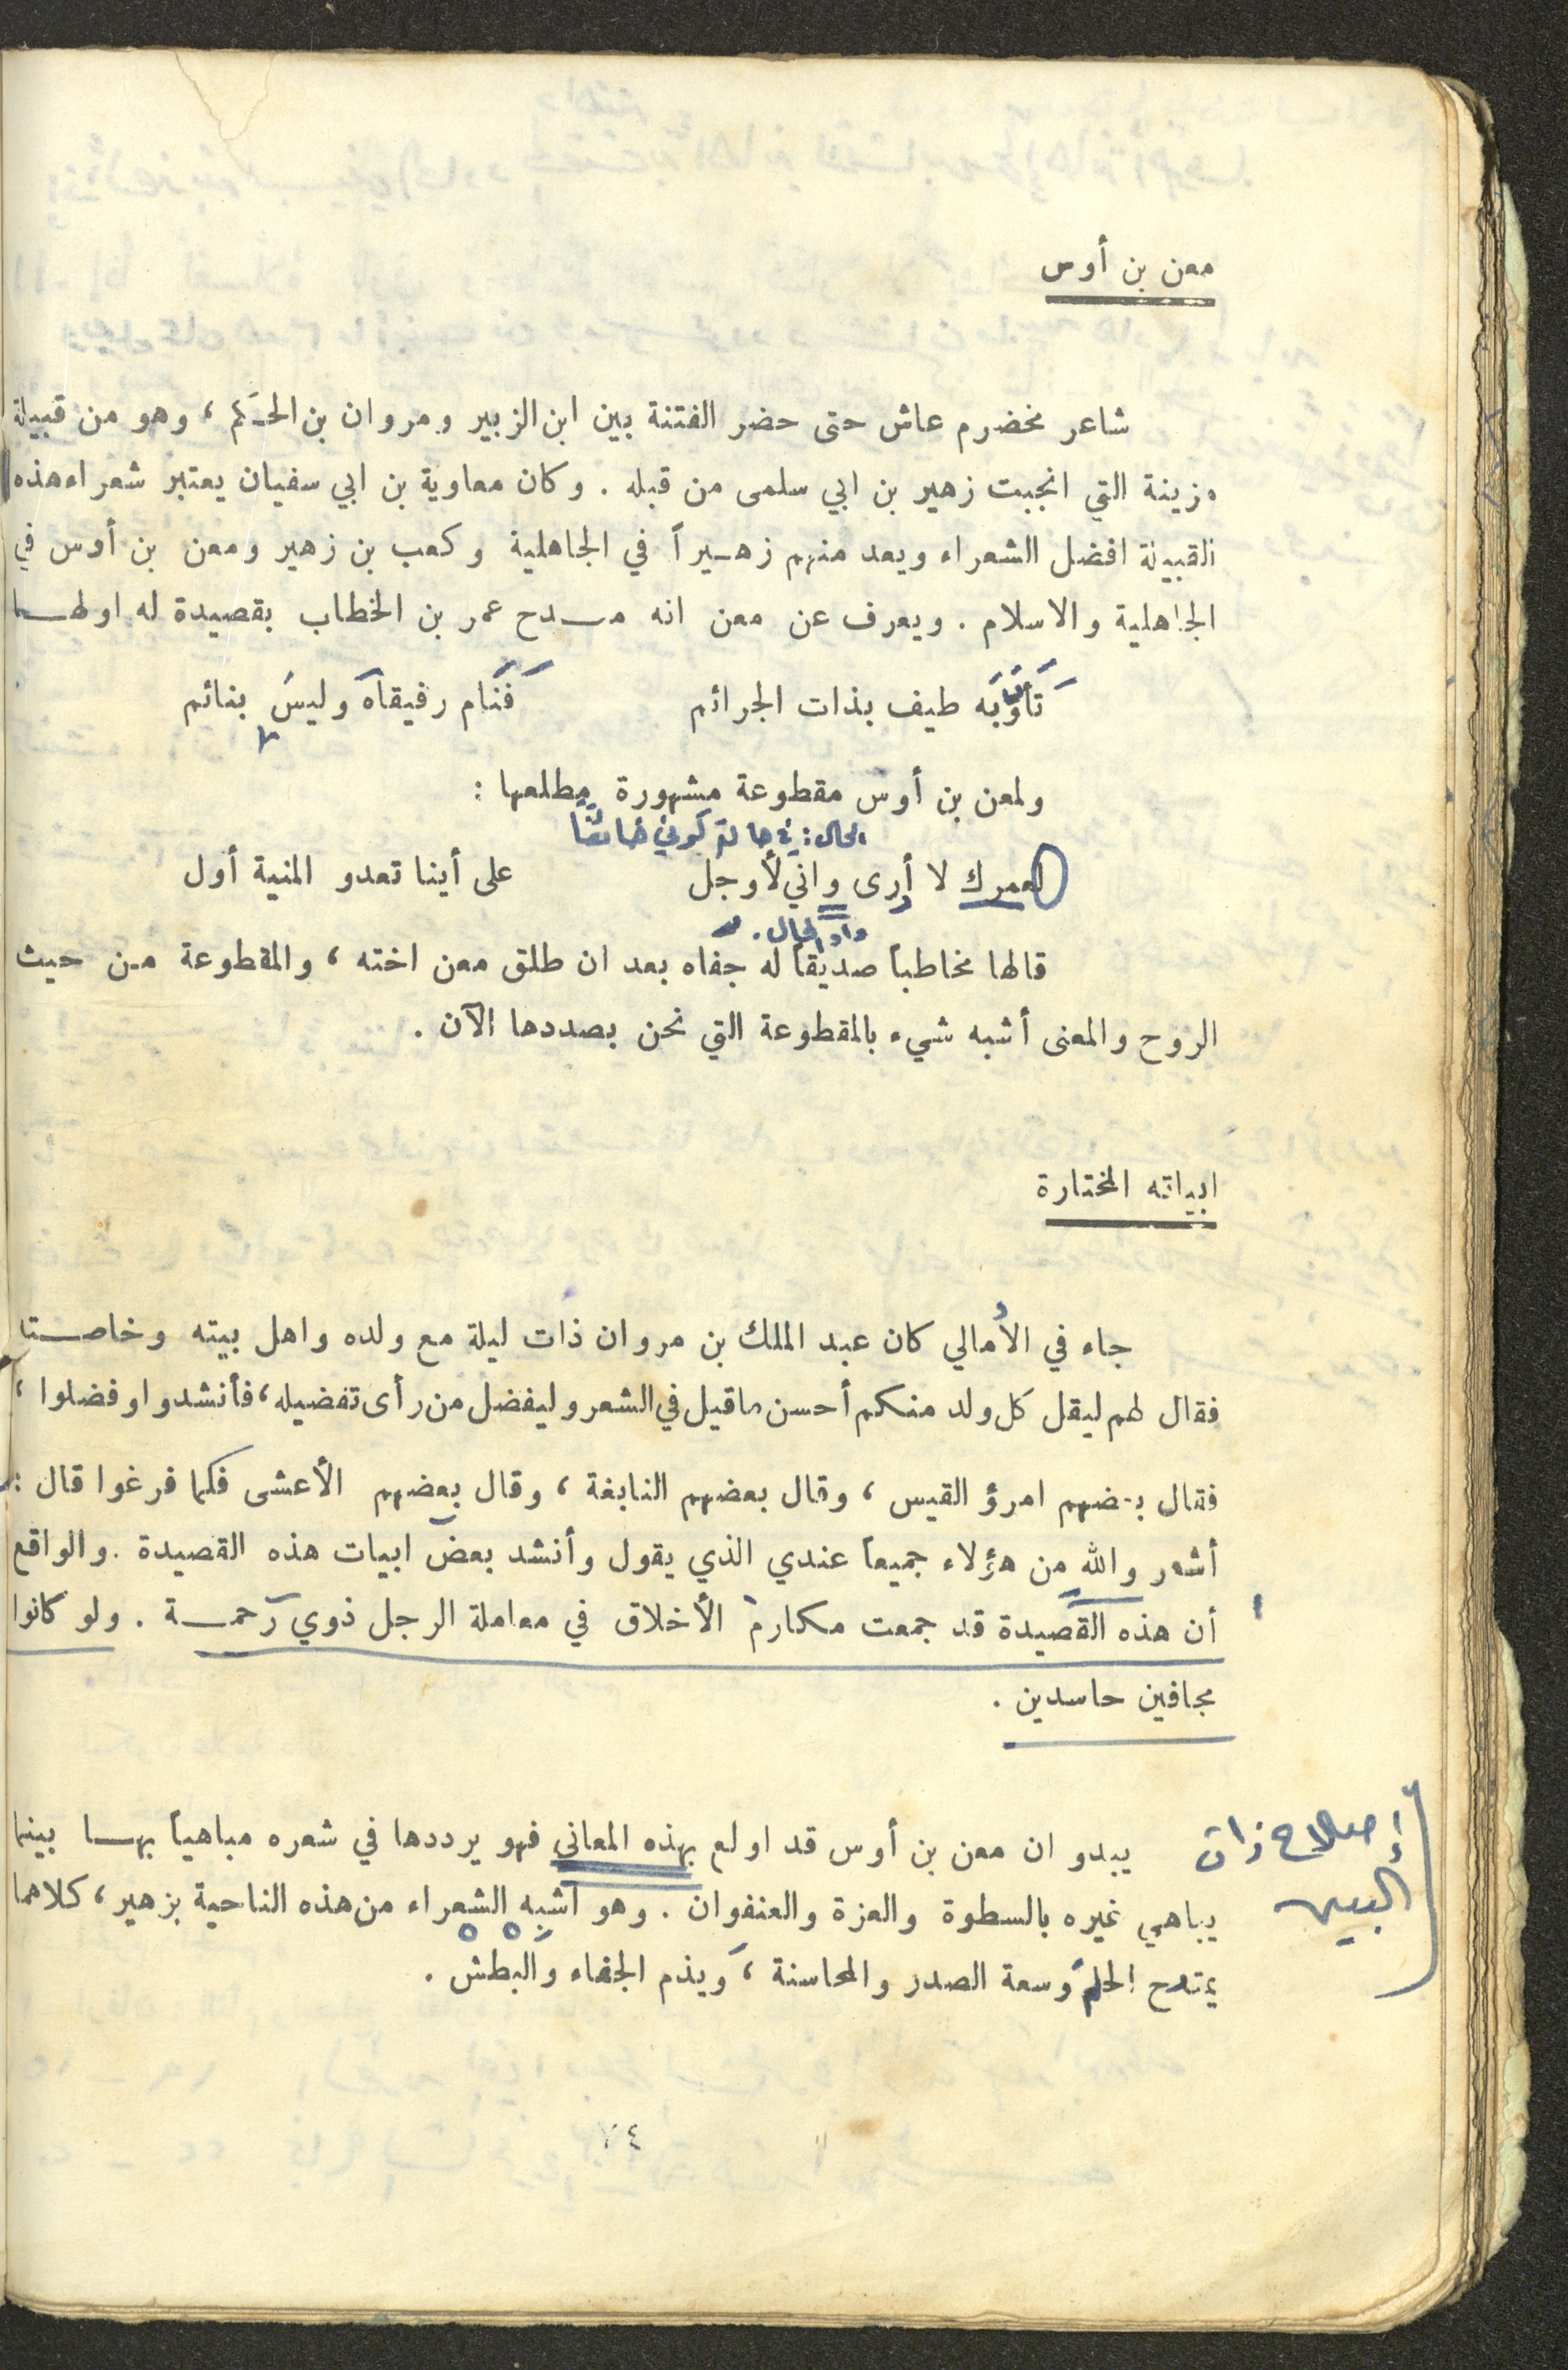 معن بن أوس
شاعر مخضرم عاش حتى حضر الفتنة بين ابن الزبير ومروان بن الحكم ، وهو من قبيلة
مزينة التي انجبت زهير بن ابي سلمى من قبله . وكان معاوية بن ابي سفيان يعتبر شعراء هذه
القبيلة افضل الشعراء ويعد منهم زهيراً في الجاهلية وكعب بن زهير ومعن بن أوس في
الجاهلية والاسلام . ويعرف عن معن انه مدح عمر بن الخطاب بقصيدة له اولها
تأوَّبَه طيف بذات الجرائم فَنَام رفيقاه وليسَ بنائم
ولمعن بن أوس مقطوعة مشهورة مطلعها :
الحال : في حالة كوني خائفًا
لعمرك لا أرى واني لأوجل على أينا تعدو المنية أول
واو الحال .
قالها مخاطباً صديقاً له جفاه بعد ان طلق معن اخته ، والمقطوعة من حيث
الروح والمعنى أشبه شيء بالمقطوعة التي نحن بصددها الآن .
ابياته المختارة
جاء في الأمالي كان عبد الملك بن مروان ذات ليلة مع ولده واهل بيته وخاصته
فقال لهم ليقل كل ولد منكم أحسن ما قيل في الشعر وليفضل من رأى تفضيله ، فأنشدوا وفضلوا ،
فقال بعضهم امرؤ القيس ، وقال بعضهم النابغة ، وقال بعضهم الأعشى فلما فرغوا قال :
أشعر والله من هؤلاء جميعاً عندي الذي يقول وأنشد بعض ابيات هذه القصيدة . والواقع
أن هذه القصيدة قد جمعت مكارم الأخلاق في معاملة الرجل ذوي رحمة . ولو كانوا
مجافين حاسدين .
إصلاح ذات
البين
يبدو ان معن بن أوس قد اولع بهذه المعاني فهو يرددها في شعره مباهياً بها بينما
يباهي غيره بالسطوة والعزة والعنفوان . وهو اشبه الشعراء من هذه الناحية بزهير ، كلاهما
يمتدح الحلم وسعة الصدر والمحاسنة ، ويذم الجفاء والبطش .
٧٤